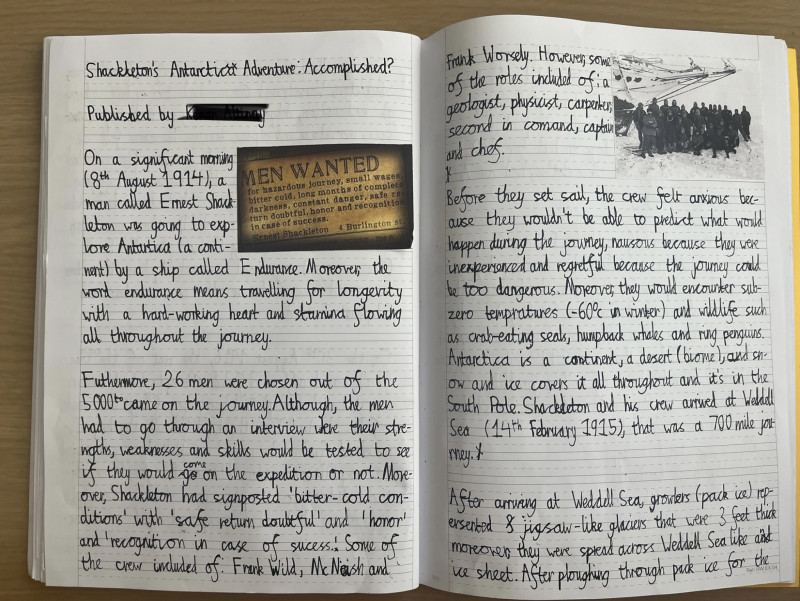 Shackleton's Antarctica Adventure: Accomplished?
Published by
On a significant morning
(8th August 1914), a
man called Ernest Shack-
leton was going to exp-
lore Antartica (a conti-
nent) by a ship called Endurance. Moreover, the
word endurance means travelling for longevity
with a hard-working heart and stamina flowing
all throughout the journey.
MEN WANTED
for hazardous journey, small wages,
bitter cold, long months of complete
darkness, constant danger, safe re-
turn doubtful, honor and recognition
in case of success.
Ernest Shackleton 4 Burlington st.
Futhermore, 26 men were chosen out of the
5000 to came on the journey. Although, the men
had to go through an interview were their stre-
ngths, weaknesses and skills would be tested to see
if they would come on the expedition or not. More-
over, Shackleton had signposted 'bitter-cold con-
ditions' with 'safe return doubtful' and 'honor'
and 'recognition in case of sucess.' Some of
the crew included of: Frank Wild, McNeish and
Frank Worsely. However, some
of the roles included of: a
geologist, physicist, carpenter,
second in comand, captain
and chef.
Before they set sail, the crew felt anxious bec-
ause they wouldn't be able to predict what would
happen during the journey, nausous because they were
inexperienced and regretful because the journey could
be too dangerous. Moreover, they would encounter sub-
zero tempratures (-60°c in winter) and wildlife such
as crab-eating seals, humpback whales and ring penguins.
Antarctica is a continent, a desert (biome), and sn-
ow and ice covers it all throughout and it's in the
South Pole. Shackleton and his crew arrived at Weddell
Sea (14th February 1915), that was a 700 mile jou-
rney.
After arriving at Weddell Sea, growlers (pack ice) rep-
ersented 8 jigsaw-like glaciers that were 3 feet thick
moreover, they were spread across Weddell Sea like an
ice sheet. After ploughing through pack ice for the